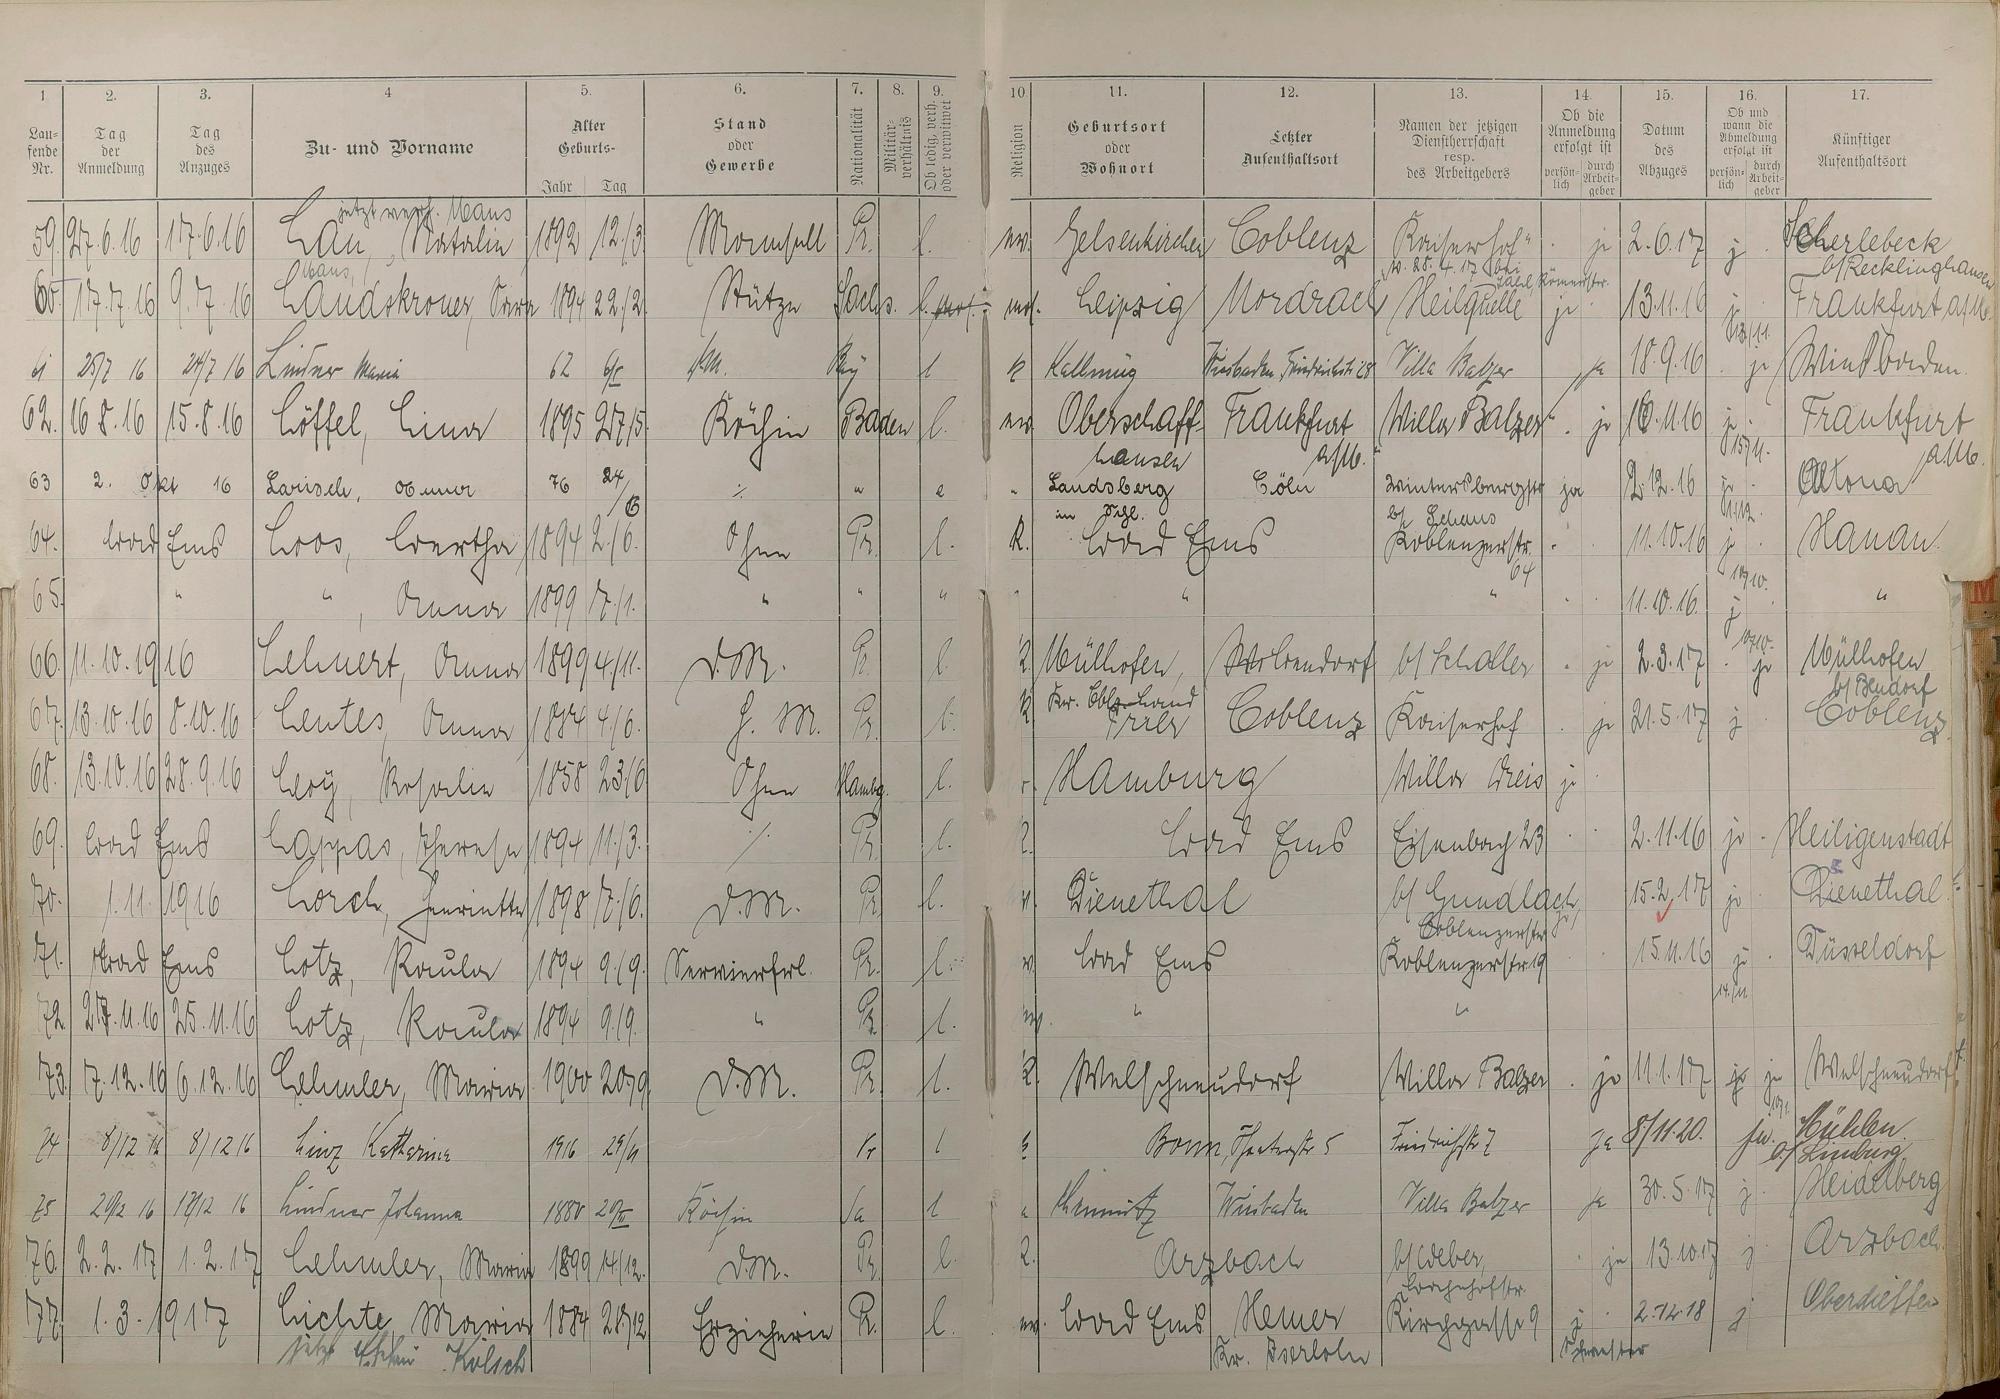 1 2. 3. 4 5. 6. 7. 8. 9. 10 11. 12. 13. 14. 15. 16. 17.
Laufende Nr. Tag der Anmeldung Tag des Anzuges Zu- und Vorname Alter Geburts- Jahr Tag Stand oder Gewerbe Nationalität Militärverhältnis Ob ledig, verh. oder verwitwet Religion Geburtsort oder Wohnort Letzter Aufenthaltsort Namen der jetzigen Dienstherrschaft resp. des Arbeitgebers Ob die Anmeldung erfolgt ist persönlich durch Arbeitgeber Datum des Abzuges Ob und wann die Abmeldung erfolgt ist persönlich durch Arbeitgeber Künftiger Aufenthaltsort
jetzt verh. Maus
59. 27.6.16 17.6.16 Lau, Natalie 1892 12./3. Mamsell Pr. l. ev. Gelsenkirchen Coblenz "Kaiserhof" ja 2.6.17 j Scherlebeck
b/Recklinghausen
60. 17.7.16 9.7.16 Landskroner, 1894 22./2. Stütze Sachs. l. mos. Leipzig Nordrach Heilquelle ja 13.11.16 j Frankfurt a/M.
13/11.
61 25/7 16 24/7 16 Lindner Maria 62 Bay l k Wiesbaden, Friedrichstr. 28 Villa Balzer ja 18.9.16 ja Wiesbaden.
62. 16.8.16 15.8.16 Löffel, Lina 1895 27/5. Köchin Baden l. ev. Oberschaffhausen Frankfurt a/M. "Villa Balzer" ja 16.11.16 j. Frankfurt a/M.
15/11.
63 2. Okt 16 76 24/6 ./. " " Landsberg Cöln Wintersbergstr ja 2.12.16 j. Altona
1/12.
64. Bad Ems Loos, Bertha 1894 2./6. Ohne Pr. l. K. Bad Ems Koblenzerstr. 64 11.10.16 j Hanau.
10/10.
65. " ", Anna 1899 7./1. " " " " " 11.10.16. j "
10/10.
66. 11.10.1916 Lehnert, Anna 1899 4./11. D.M. Pr. l. K. Mülhofen, b/Schaller ja 2.3.17 ja Mülhofen
b/Bendorf
67. 13.10.16 8.10.16 Lentes, Anna 1884 4./6. H.M. Pr. l. K Coblenz Kaiserhof ja 21.5.17 j Coblenz.
68. 13.10.16 28.9.16 Levy, Rosalie 1858 23./6 Ohne Hambg. l. Hamburg Villa Reis ja
69. Bad Ems Lappas, Therese 1894 11./3. ./. Pr. l. K. Bad Ems Eisenbach 23 2.11.16 ja Heiligenstadt
70. 1.11.1916 Lorch, Henriette 1898 7./6. D.M. Pr. l. ev. Dienethal b/Gundlach, Coblenzerstr. 15.2.17 ja Dienethal.
71. Bad Ems Lotz, Paula 1894 9./9. Servierfrl. Pr. l. ev. Bad Ems Koblenzerstr. 19 15.11.16 ja Düsseldorf
14./11
72. 27.11.16 25.11.16 Lotz, Paula 1894 9./9. " Pr. l. ev. " "
73. 7.12.16 6.12.16 Lehmler, Maria 1900 20./9. D.M. Pr. l. K. Welschneudorf Villa Balzer ja 11.1.17 ja Welschneudorf
10/1.
74 8/12 16 8/12 16 Linz Katharina 1916 Pr l Bonn, Theaterstr 5 Friedrichstr 7 ja 8/11.20. ja. Mühlen
b/Limburg
75 16 Lindner Johanna 1880 Köchin Sa l Wiesbaden Villa Balzer ja 30.5.17 j. Heidelberg
76. 2.2.17 1.2.17 Lehmler, Maria 1899 14/12. D.M. Pr. l. K. Arzbach b/Weber, Bachhofstr. ja 13.10.17 j Arzbach.
77. 1.3.1917 Lichte, Maria 1884 28/12 Erzieherin Pr. l. ev. Bad Ems Hemer Kirchgasse 9 j 2.12.18 j Oberdieffen
jetzt Kölsch Kr. Iserlohn Schwester